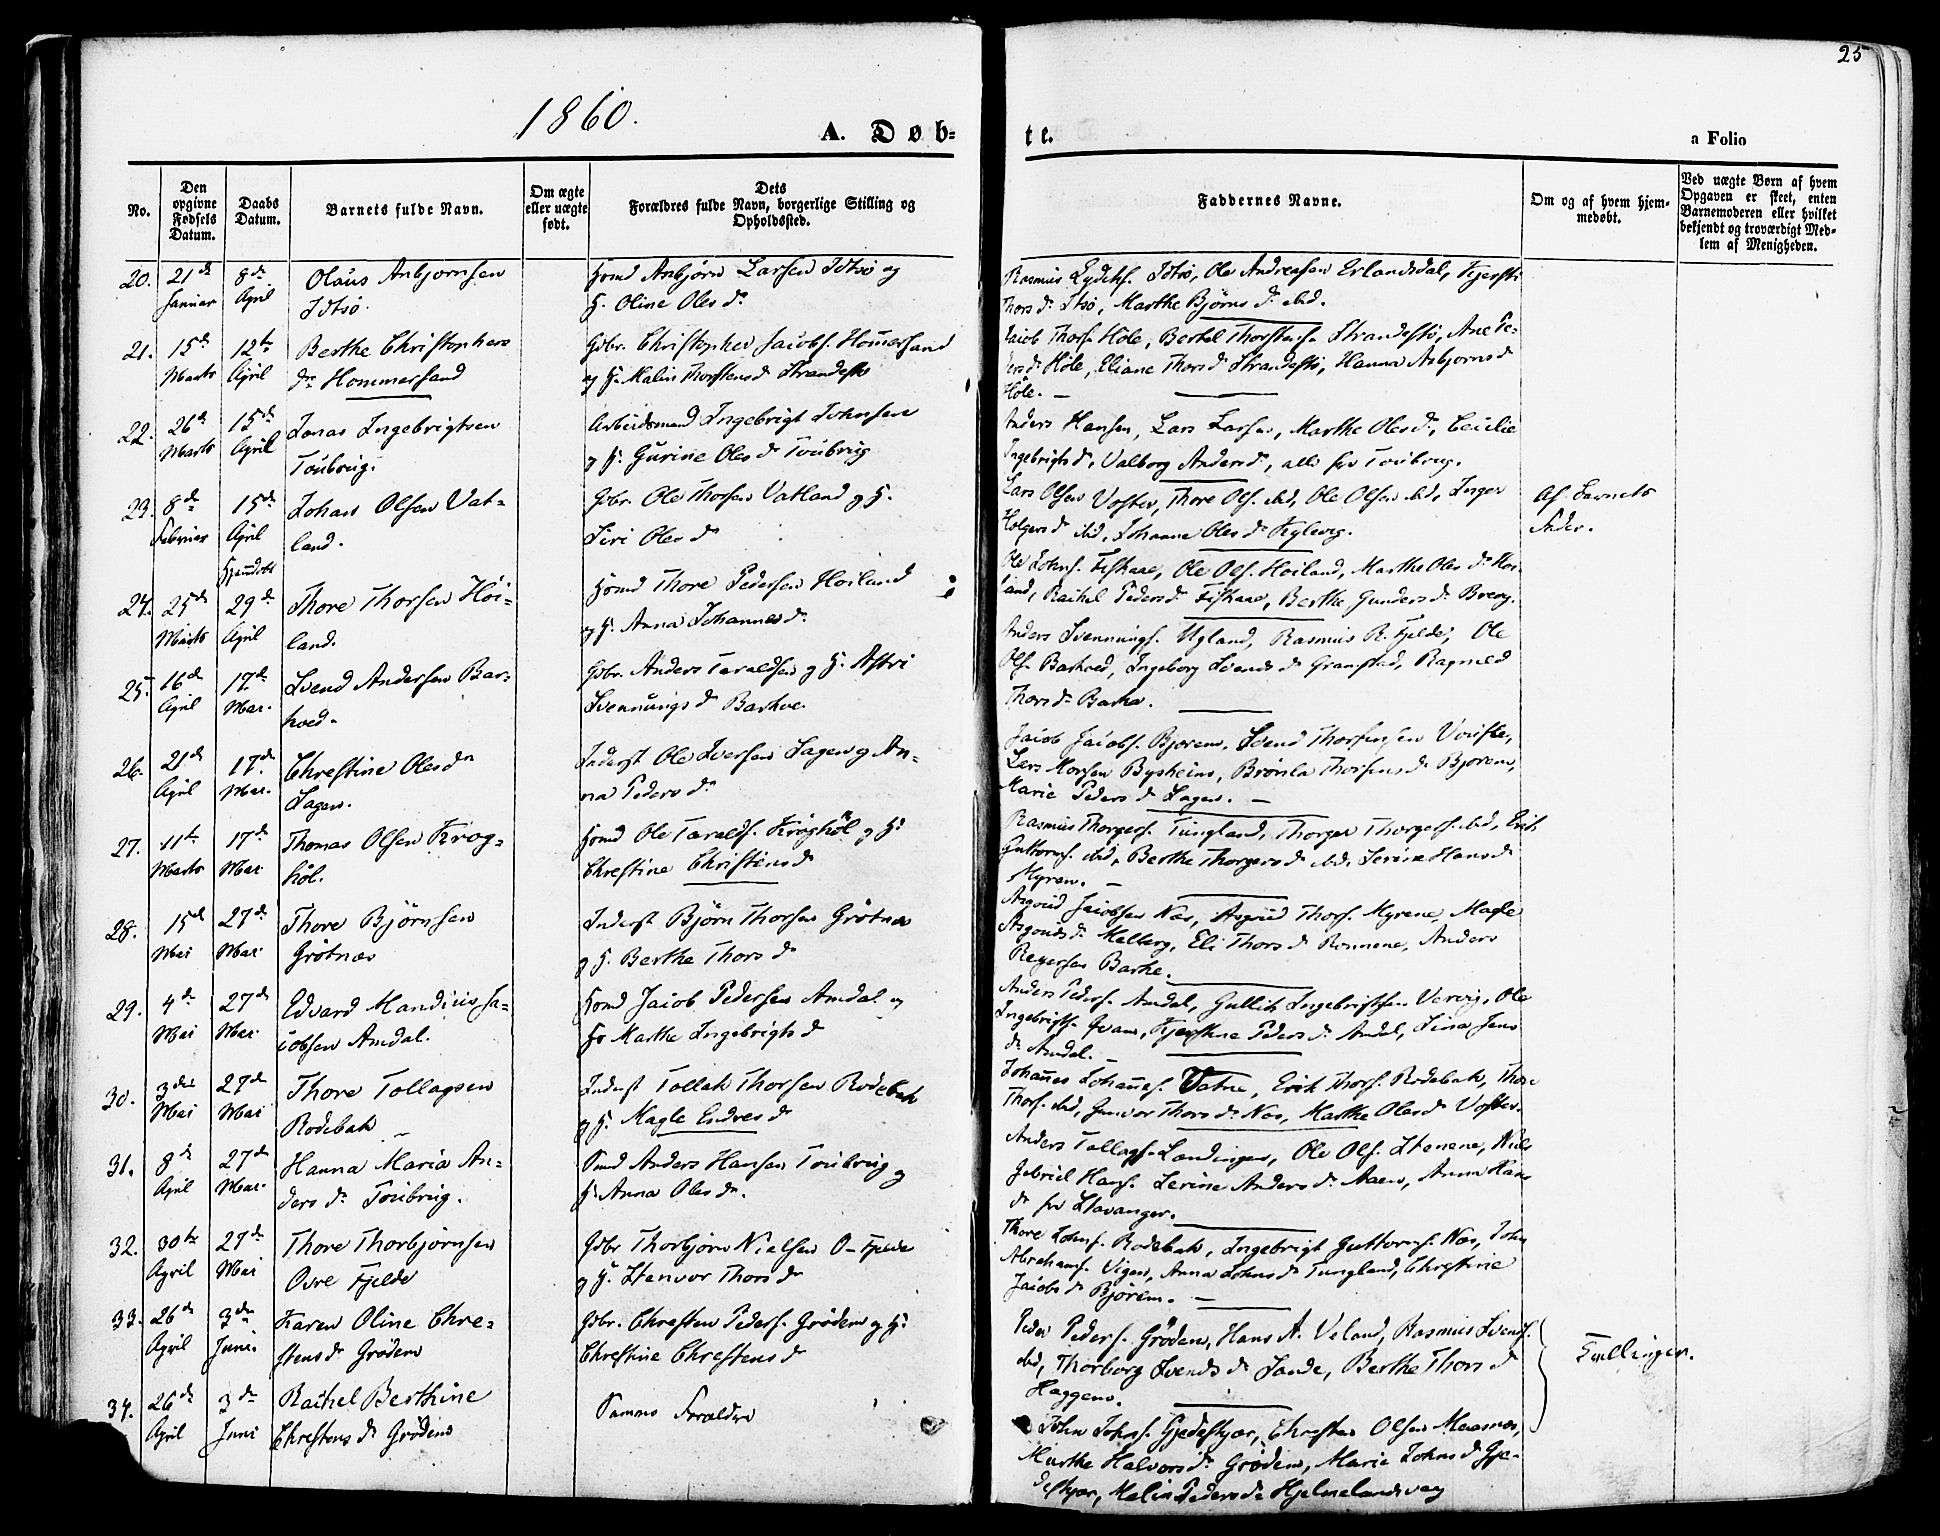 25
1860.
A. Døb-
te.
a Folio
No.
Den opgivne Fødsels Datum.
Daabs Datum.
Barnets fulde Navn.
Om ægte eller uægte født.
Dets Forældres fulde Navn, borgerlige Stilling og Opholdssted.
Faddernes Navne.
Om og af hvem hjem-
medøbt.
Ved uægte Børn af hvem
Opgaven er skeet, enten
Barnemoderen eller hvilket
bekjendt og troværdigt Med-
lem af Menigheden.
20. 21de 8de Olaus Asbjornsen
Januar April Idtsö.
Hsmd Asbjørn Larsen Idtsö og
H. Oline Olesd.
Rasmus Eydetsf. Idtsö, Ole Andreasen Erlandsdal, Kjersti
Thorsd. Itsö, Marthe Bjørnsd. ibid.
21. 15de 12te Berthe Christophers
Marts April d. Hommersand
Gdbr. Christopher Jacobs. Homersand
og H. Malin Thorstensd. Strandestö
Jacob Thorsf. Höle, Bertel Thorstensen Strandestö, Ane Pe-
dersd. Höle, Eliane Thorsd. Strandestö, Hanna Asbjornsd.
Höle.
22. 26de 15de Jonas Ingebrigtsen
Marts April Toubrug.
Arbeidsmand Ingebrigt Johnsen
og H. Gurine Olesd. Toubrug
Anders Hansen, Lars Larsen, Marthe Olesd., Cecilie
Ingebrigtsd., Valborg Andersd., alle fra Toubrug.
23. 8de 15de Johans Olsen Vat-
Februar April land.
Gdbr. Ole Thorsen Vatland og H.
Siri Olesd.
Lars Olsen Voster, Thore Ols. ibid, Ole Olsen ibid, Inger
Holgersd. ibid, Johanne Olesd.
Af Barnets
Fader.
Hjemdøbt
24. 25de 29de Thore Thorsen Höi-
Marts April land.
Hsmd Thore Pedersen Høiland
og H. Anna Johannesd.
Ole Johns. Fiskaae, Ole Ols. Hoiland, Marthe Olesd. Hoi-
land, Rachel Pedersd. Fiskaae, Berthe Gundersd.
25. 16de 17de Svend Andersen Bar-
April Mai. hoed.
Gdbr. Anders Taraldsen og H. Astri
Svennungsd. Barkve
Anders Svennungs. Ugland, Rasmus R. Fjelde, Ole
Ols. Barkved, Ingeborg Svendsd. Gramstad, Ragnild
Thorsd. Barka.
26. 21de 17de Chrestine Olesdn
April Mai. Sagen.
Inderst Ole Iversen Sagen og An-
na Pedersd.
Jacob Jacobs. Bjorem, Svend Thorsensen
Lars Morsen Bysheim, Brönla Thorsensd. Bjorem,
Marie Pedersd. Sagen.
27. 11te 17de Thomas Olsen Krog-
Marts Mai höl.
Hsmd Ole Taralds. Kroghöl og H.
Chrestine Christensd.
Rasmus Thorgers. Tungland, Thorger Thorgers. ibid, Erik
Guttorms. ibid, Berthe Thorgersd. ibid, Serine Hansd.
Myren.
28. 15de 27de Thore Björnsen
Mai Mai Grötnæs
Inderst Björn Thorsen Grötnæs
og H. Berthe Thorsd.
Asgoud Jacobsen Næs, Asgoud Thors. Myrene, Magle
Asgoudsd. Melberg, Eli Thorsd. Ronnene, Anders
Reyersen Barke.
29. 4de 27de Edvard Mandius Ja-
Mai Mai. cobsen Amdal.
Hsmd Jacob Pedersen Amdal og
H. Marthe Ingebrigtsd.
Anders Peders. Amdal, Gullich Ingebrigtsen Vervig, Ole
Ingebrigts. Kjerstine Pedersd. Amdal, Sina Jens
d. Amdal.
30. 3die 27de Thore Tollagsen
Mai Mai Rodebak
Inderst Tollak Thorsen Rodebak
og H. Magle Endresd.
Johannes Johannes. Vatne, Erik Thors. Rodebak, Thore
Thors. ibid, Gunvor Thorsd. Næs, Marthe Olesd. Voster.
31. 8de 27de Hanna Maria An-
April Mai. dersd. Toubrug.
Smd Anders Hansen Toubrug og
H. Anna Olesd.
Anders Tollags. Landingen, Ole Ols. Stenene, Niels
Gabriel Hans. Serine Andersd. Aaen, Anna Hans
d. fra Stavanger.
32. 30te 27de Thore Thorbjørnsen
April Mai Ovre Fjelde
Gdbr Thorbjørn Nielsen O-Fjelde
og H. Stenvor Thorsd.
Thore Johns. Rodebak, Ingebrigt Guttorms. Næs, John
Abrahams. Vigen, Anna Johnsd. Tungland, Chrestine
Jacobsd. Bjorem.
33. 26de 3die Karen Oline Chre-
April Juni. stensd. Grödem
Gdbr. Chresten Peders. Grødem og H.
Chrestine Chrestensd.
Peder Peders. Grödem, Hans A. Veland, Rasmus Svends.
ibid, Thorborg Svendsd. Sande, Berthe Thorsd.
Haggem.
Tvillinger.
34. 26de 3de Rachel Berthine
April Juni Chrestensd. Grødem
Samme Forældre
John Johns. Gjedeskjær, Chresten Olsen Maasnæs,
Marthe Halvorsd. Grödem, Marie Johnsd. Gje-
deskjær, Malin Pedersd. Hjelmelandsvaag